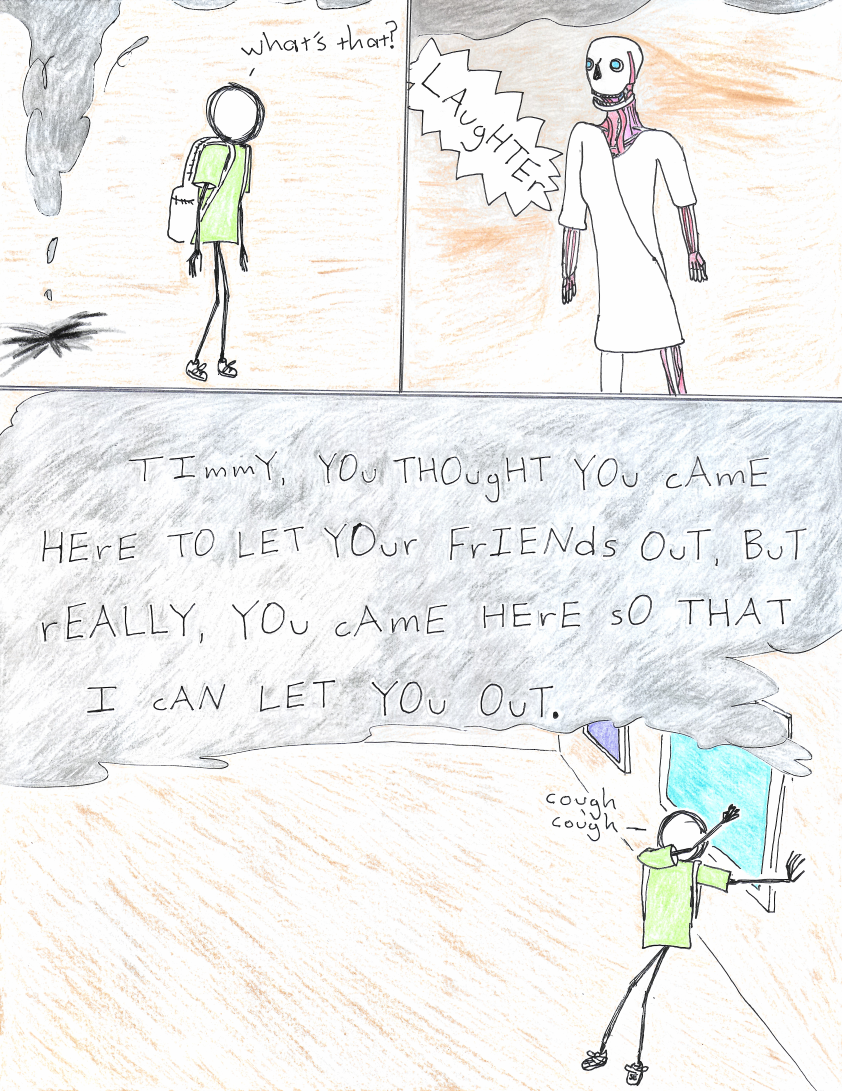 what's that?
LAugHTEr
TImmY, YOu THOugHT YOu cAmE
HErE TO LET YOur FrIENds OuT, BuT
rEALLY, YOu cAmE HErE sO THAT
I cAN LET YOu OuT.
cough
cough